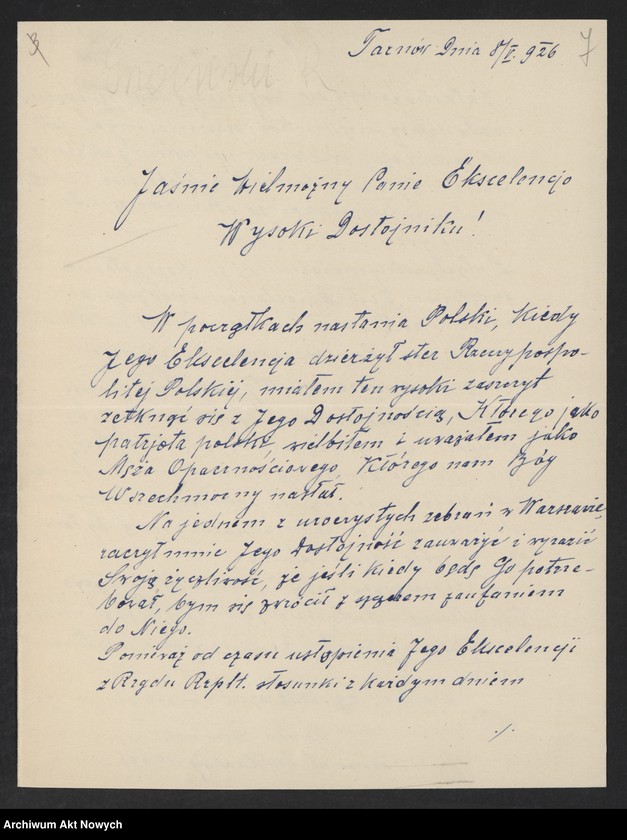 3
7
Tarnów Dnia 8/V. 926
Jaśnie Wielmożny Panie Ekscelencjo
Wysoki Dostojniku!
W początkach nastania Polski, kiedy
Jego Ekscelencja dzierżył ster Rzeczypospo-
litej Polskiej, miałem ten wysoki zaszczyt
zetknąć się z Jego Dostojnością, Którego jako
patrjota polski wielbiłem i uważałem jako
Męża Opacznościowego, Którego nam Bóg
Wszechmocny nasłał.
Na jednem z uroczystych zebrań w Warszawie,
raczył mnie Jego Dostojność zauważyć i wyrazić
Swoją życzliwość, że jeśli kiedy będę Go potrze-
bował, bym się zwrócił z szczerem zaufaniem
do Niego.
Ponieważ od czasu ustąpienia Jego Ekscelencji
z Rządu Rzplt. stosunki z każdym dniem
./.
Archiwum Akt Nowych